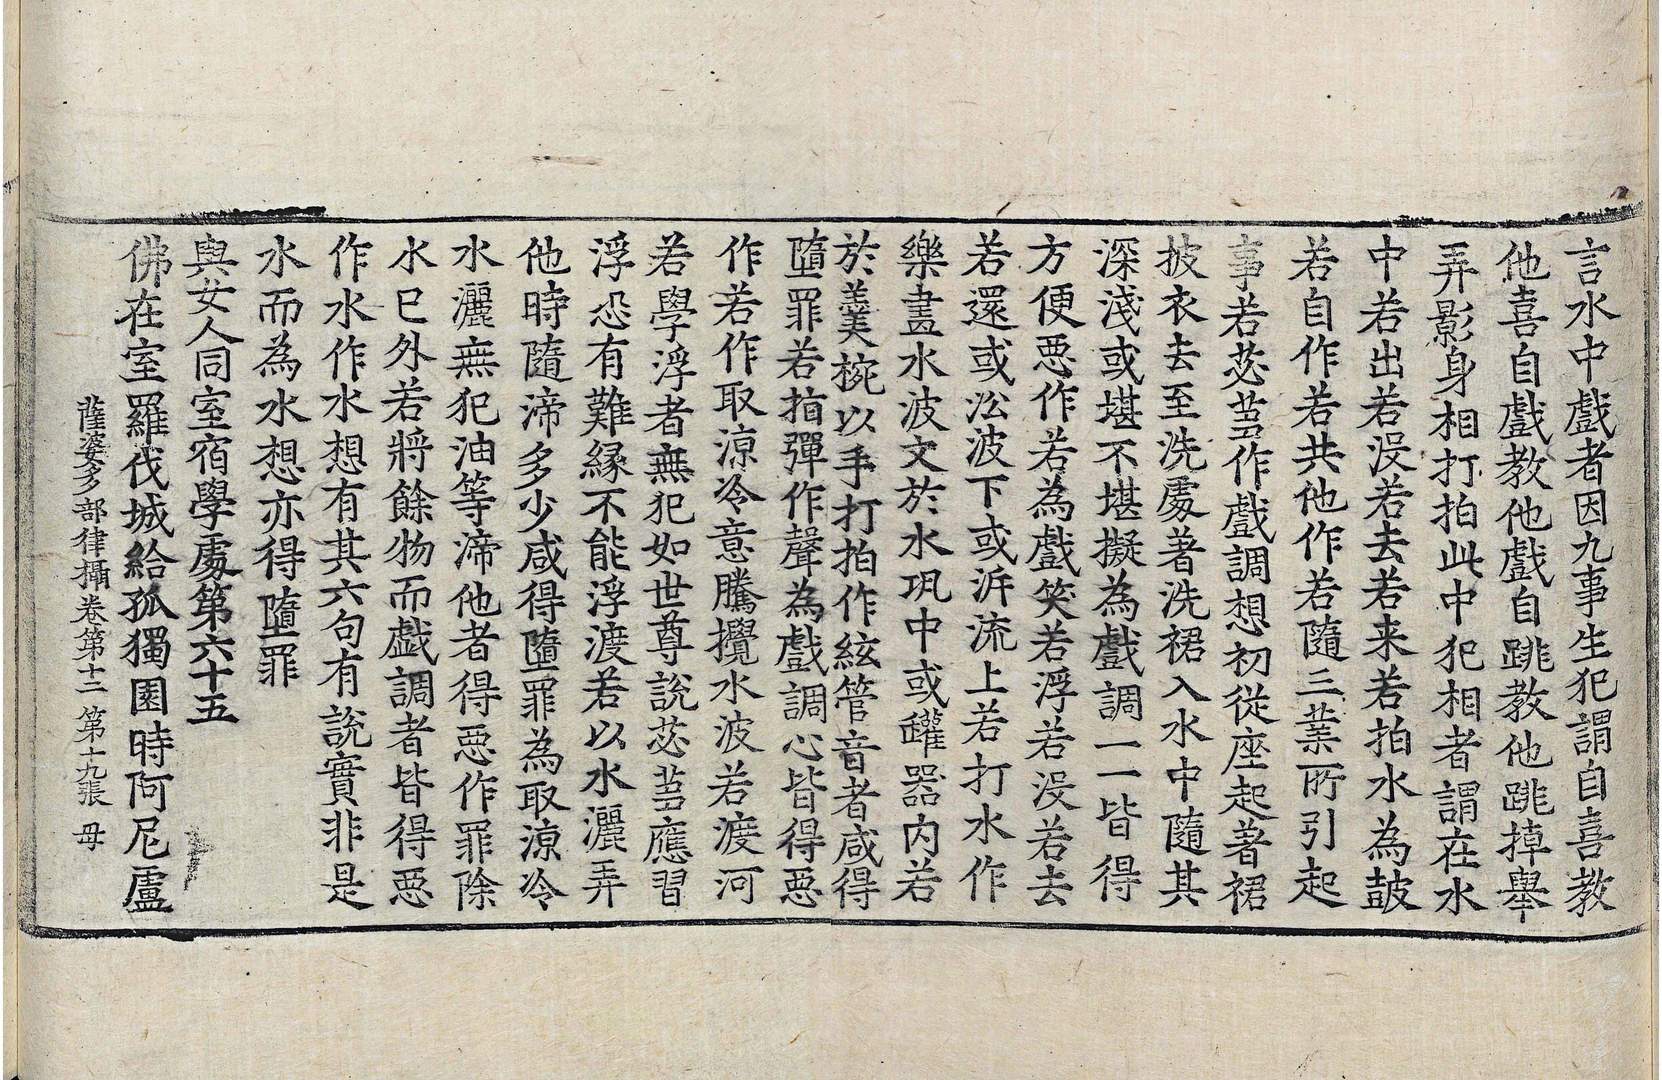 言水中戲者因九事生犯謂自喜教
他喜自戲教他戲自跳教他跳掉舉
弄影身相打拍此中犯相者謂在水
中若出若没若去若来若拍水為鼓
若自作若共他作若隨三業所引起
事若苾芻作戲調想初從座起著裙
披衣去至洗處著洗裙入水中隨其
深淺或堪不堪擬為戲調一一皆得
方便惡作若為戲笑若浮若没若去
若還或㳂波下或泝流上若打水作
樂畫水波文於水巩中或罐器内若
於羹椀以手打拍作絃管音者咸得
墮罪若指彈作聲為戲調心皆得惡
作若作取涼冷意騰攪水波若渡河
若學浮者無犯如世尊說苾芻應習
浮恐有難縁不能浮渡若以水灑弄
他時隨渧多少咸得墮罪為取涼冷
水灑無犯油等渧他者得惡作罪除
水已外若將餘物而戲調者皆得惡
作水作水想有其六句有說實非是
水而為水想亦得墮罪
與女人同室宿學處第六十五
佛在室羅伐城給孤獨園時阿尼盧
薩婆多部律攝卷第十二 第十九張 毋